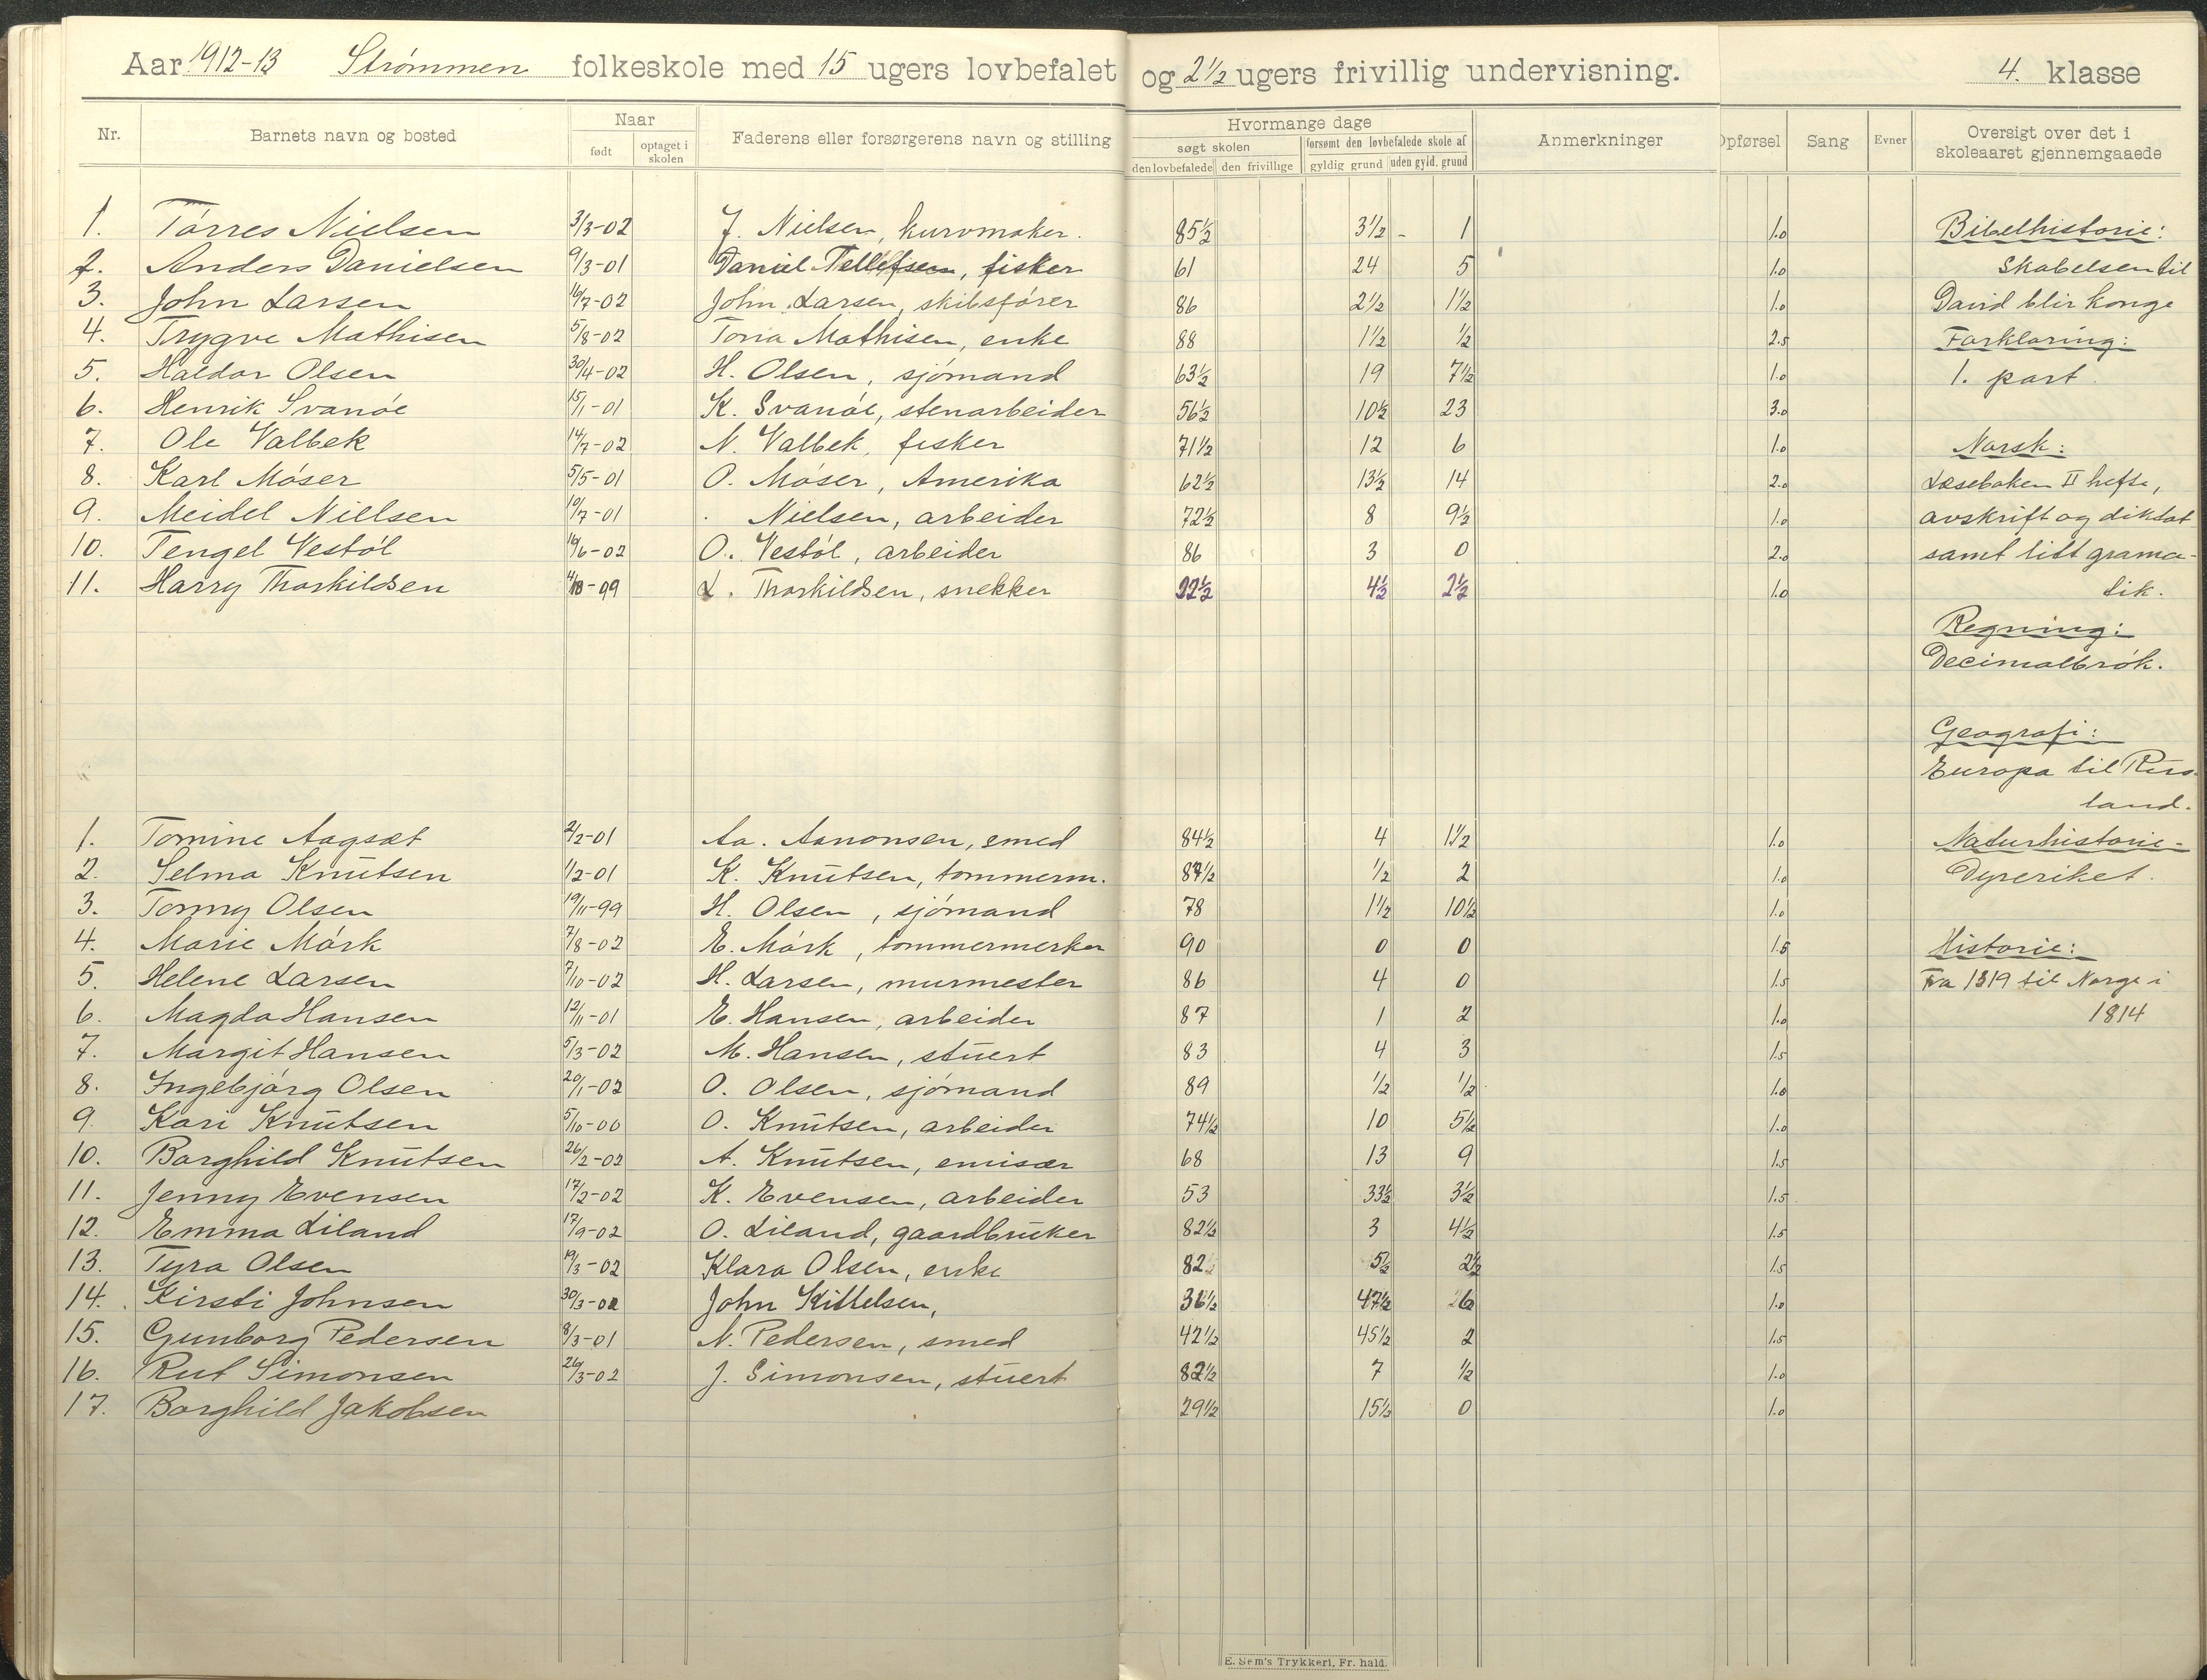 Aar 1912-13 Strømmen folkeskole med 15 ugers lovbefalet og 2½ ugers frivillig undervisning. 4. klasse
Nr. Barnets navn og bosted Naar født optaget i skolen Faderens eller forsørgerens navn og stilling Hvormange dage søgt skolen den lovbefalede den frivillige forsømt den lovbefalede skole af gyldig grund uden gyld. grund Anmerkninger Opførsel Sang Evner Oversigt over det i skoleaaret gjennemgaaede
1. Tørres Nielsen 3/3-02 J. Nielsen, kurvmaker. 85½ 3½ - 1 1.0 Bibelhistorie:
2. Anders Danielsen 9/3-01 Daniel Tellefsen, fisker 61 24 5 1.0 Skabelsen til
3. John Larsen 16/7-02 John Larsen, skibsfører 86 2½ 1½ 1.0 David blir konge
4. Trygve Mathisen 5/8-02 Tona Mathisen, enke 88 1½ ½ 2.5 Forklaring:
5. Haldor Olsen 30/4-02 H. Olsen, sjømand 63½ 19 7½ 1.0 1. part.
6. Henrik Svanøe 15/1-01 K. Svanøe, stenarbeider 56½ 10½ 23 3.0
7. Ole Valbek 14/7-02 N. Valbek, fisker 71½ 12 6 1.0 Norsk:
8. Karl Møser 5/5-01 O. Møser, Amerika 62½ 13½ 14 2.0 Læseboken II hefte,
9. Meidel Nielsen 10/7-01 Nielsen, arbeider 72½ 8 9½ 1.0 avskrift og diktat
10. Tengel Vestøl 16/6-02 O. Vestøl, arbeider 86 3 0 2.0 samt litt grama-
11. Harry Thorkildsen 4/10-99 L. Thorkildsen, snekker 22½ 4½ 2½ 1.0 tik.
Regning:
Decimalbrøk.
Geografi:
Europa til Rus-
land.
1. Tomine Aagsæt 2/2-01 Aa. Aanonsen, smed 84½ 4 1½ 1.0 Naturhistorie-
2. Selma Knutsen 1/2-01 K. Knutsen, tommerm. 87½ ½ 2 1.0 Dyreriket.
3. Tonny Olsen 19/11-99 H. Olsen, sjømand 78 1½ 10½ 1.0
4. Marie Mørk 7/8-02 E. Mørk, tommermerker 90 0 0 1.5 Historie:
5. Helene Larsen 7/10-02 H. Larsen, murmester 86 4 0 1.5 Fra 1319 til Norge i
6. Magda Hansen 12/11-01 E. Hansen, arbeider 87 1 2 1.0 1814
7. Margit Hansen 5/3-02 M. Hansen, stuert 83 4 3 1.5
8. Ingebjørg Olsen 20/1-02 O. Olsen, sjømand 89 ½ ½ 1.0
9. Kari Knutsen 5/10-00 O. Knutsen, arbeider 74½ 10 5½ 1.0
10. Borghild Knutsen 26/2-02 A. Knutsen, emisær 68 13 9 1.5
11. Jenny Evensen 17/2-02 K. Evensen, arbeider 53 33½ 3½ 1.5
12. Emma Liland 17/9-02 O. Liland, gaardbruker 82½ 3 4½ 1.5
13. Tyra Olsen 19/3-02 Klara Olsen, enke 82 5½ 2½ 1.5
14. Kirsti Johnsen 30/3-02 John Kittelsen, 36½ 47½ 6 1.0
15. Gunborg Pedersen 8/3-01 N. Pedersen, smed 42½ 45½ 2 1.5
16. Rut Simonsen 26/3-02 J. Simonsen, stuert 82½ 7 ½ 1.0
17. Borghild Jakobsen 29½ 15½ 0 1.0
E. Sem's Trykkeri, Fr. hald.